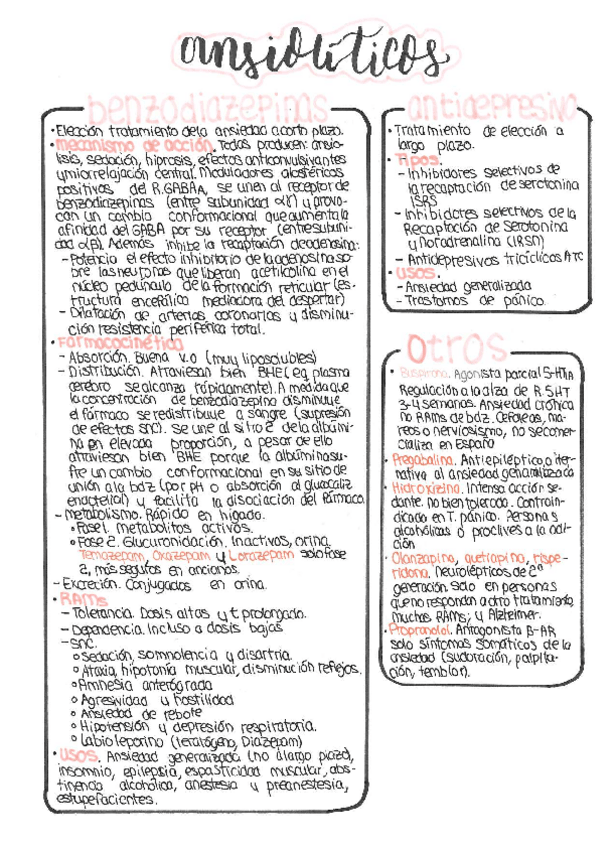 ansiolíticos
benzodiazepinas
·Elección tratamiento dela ansiedad a corto plazo.
·mecanismo de acción. Todas producen: ansio-
lisis, sedación, hipnosis, efectos anticonvulsivantes
y miorrelajación central. Moduladores alostéricos
positivos del R.GABAA, se unen al receptor de
benzodiazepinas (entre subunidad αγ) y provo-
can un cambio conformacional que aumenta la
afinidad del GABA por su receptor (entre subuni-
dad αβ). Además inhibe la recaptación de adenosina:
- Potencia el efecto inhibitorio de la adenosina so-
bre las neuronas que liberan acetilcolina en el
núcleo pedúnculo de la formación reticular (es-
tructura encefálica mediadora del despertar)
- Dilatación de arterias coronarias y disminu-
ción resistencia periférica total.
·Farmacocinética
- Absorción. Buena v.o (muy liposolubles)
- Distribución. Atraviesan bien BHE (eq plasma
cerebro se alcanza rápidamente). A medida que
la concentración de benzodiazepina disminuye
el fármaco se redistribuye a sangre (supresión
de efectos SNC). Se une al sitio 2 de la albúmi-
na en elevada proporción, a pesar de ello
atraviesan bien BHE porque la albúmina su-
fre un cambio conformacional en su sitio de
unión a la bdz (por pH o absorción al glucocaliz
endotelial) y facilita la disociación del fármaco.
- Metabolismo. Rápido en hígado.
• Fase 1. metabolitos activos.
• Fase 2. Glucuronidación. Inactivos, orina.
Temazepam, Oxazepam y Lorazepam solo fase
2, más seguros en ancianos.
- Excreción. Conjugados en orina.
· RAMs
- Tolerancia. Dosis altas y t prolongado.
- Dependencia. Incluso a dosis bajas
- SNC.
o Sedación, somnolencia y disartria.
o Ataxia, hipotonía muscular, disminución reflejos.
o Amnesia anterógrada
o Agresividad y hostilidad
o Ansiedad de rebote
o Hipotensión y depresión respiratoria.
o Labio leporino (teratógeno, Diazepam)
· USOS. Ansiedad generalizada (no a largo plazo),
insomnio, epilepsia, espasticidad muscular, abs-
tinencia alcohólica, anestesia y preanestesia,
estupefacientes.
antidepresivo
·Tratamiento de elección a
largo plazo.
· Tipos.
- Inhibidores selectivos de
la recaptación de serotonina
ISRS
- Inhibidores selectivos de la
Recaptación de Serotonina
y Noradrenalina (IRSM)
- Antidepresivos tricíclicos ATC
· USOS.
- Ansiedad generalizada
- Trastornos de pánico.
Otros
· Buspirona. Agonista parcial 5-HT1A
Regulación a la alza de R.5HT
3-4 semanas. Ansiedad crónica
no RAMs de bdz. Cefaleas, ma-
reos o nerviosismo, no se comer-
cializa en España
· Pregabalina. Antiepiléptico alter-
nativa al ansiedad generalizada
· Hidroxizina. Intensa acción se-
dante. no bien tolerado. Contrain-
dicado en T. pánico. Personas
alcohólicas o proclives a la adi-
ción
· Olanzapina, quetiapina, rispe-
ridona. Neurolépticos de 2ª
generación. Solo en personas
que no respondan a otro tratamiento,
muchas RAMs; y Alzheimer.
· Propranolol. Antagonista β-AR,
solo síntomas somáticos de la
ansiedad (sudoración, palpita-
ción, temblor).